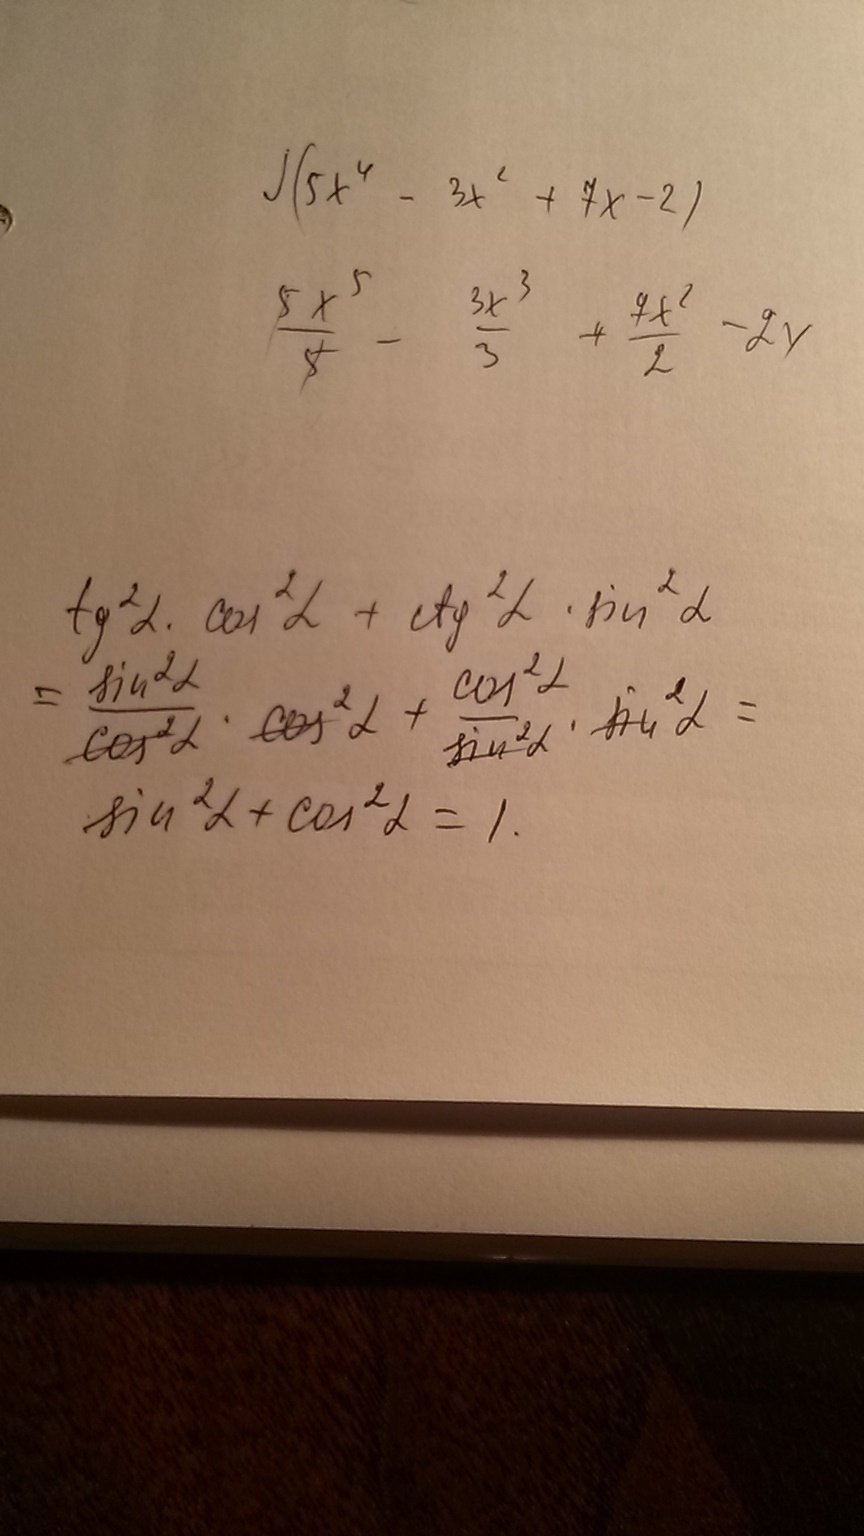 ∫(5x⁴ - 3x² + 7x - 2)
5x⁵/5 - 3x³/3 + 7x²/2 - 2x
tg²α · cos²α + ctg²α · sin²α
= sin²α/cos²α · cos²α + cos²α/sin²α · sin²α =
sin²α + cos²α = 1.